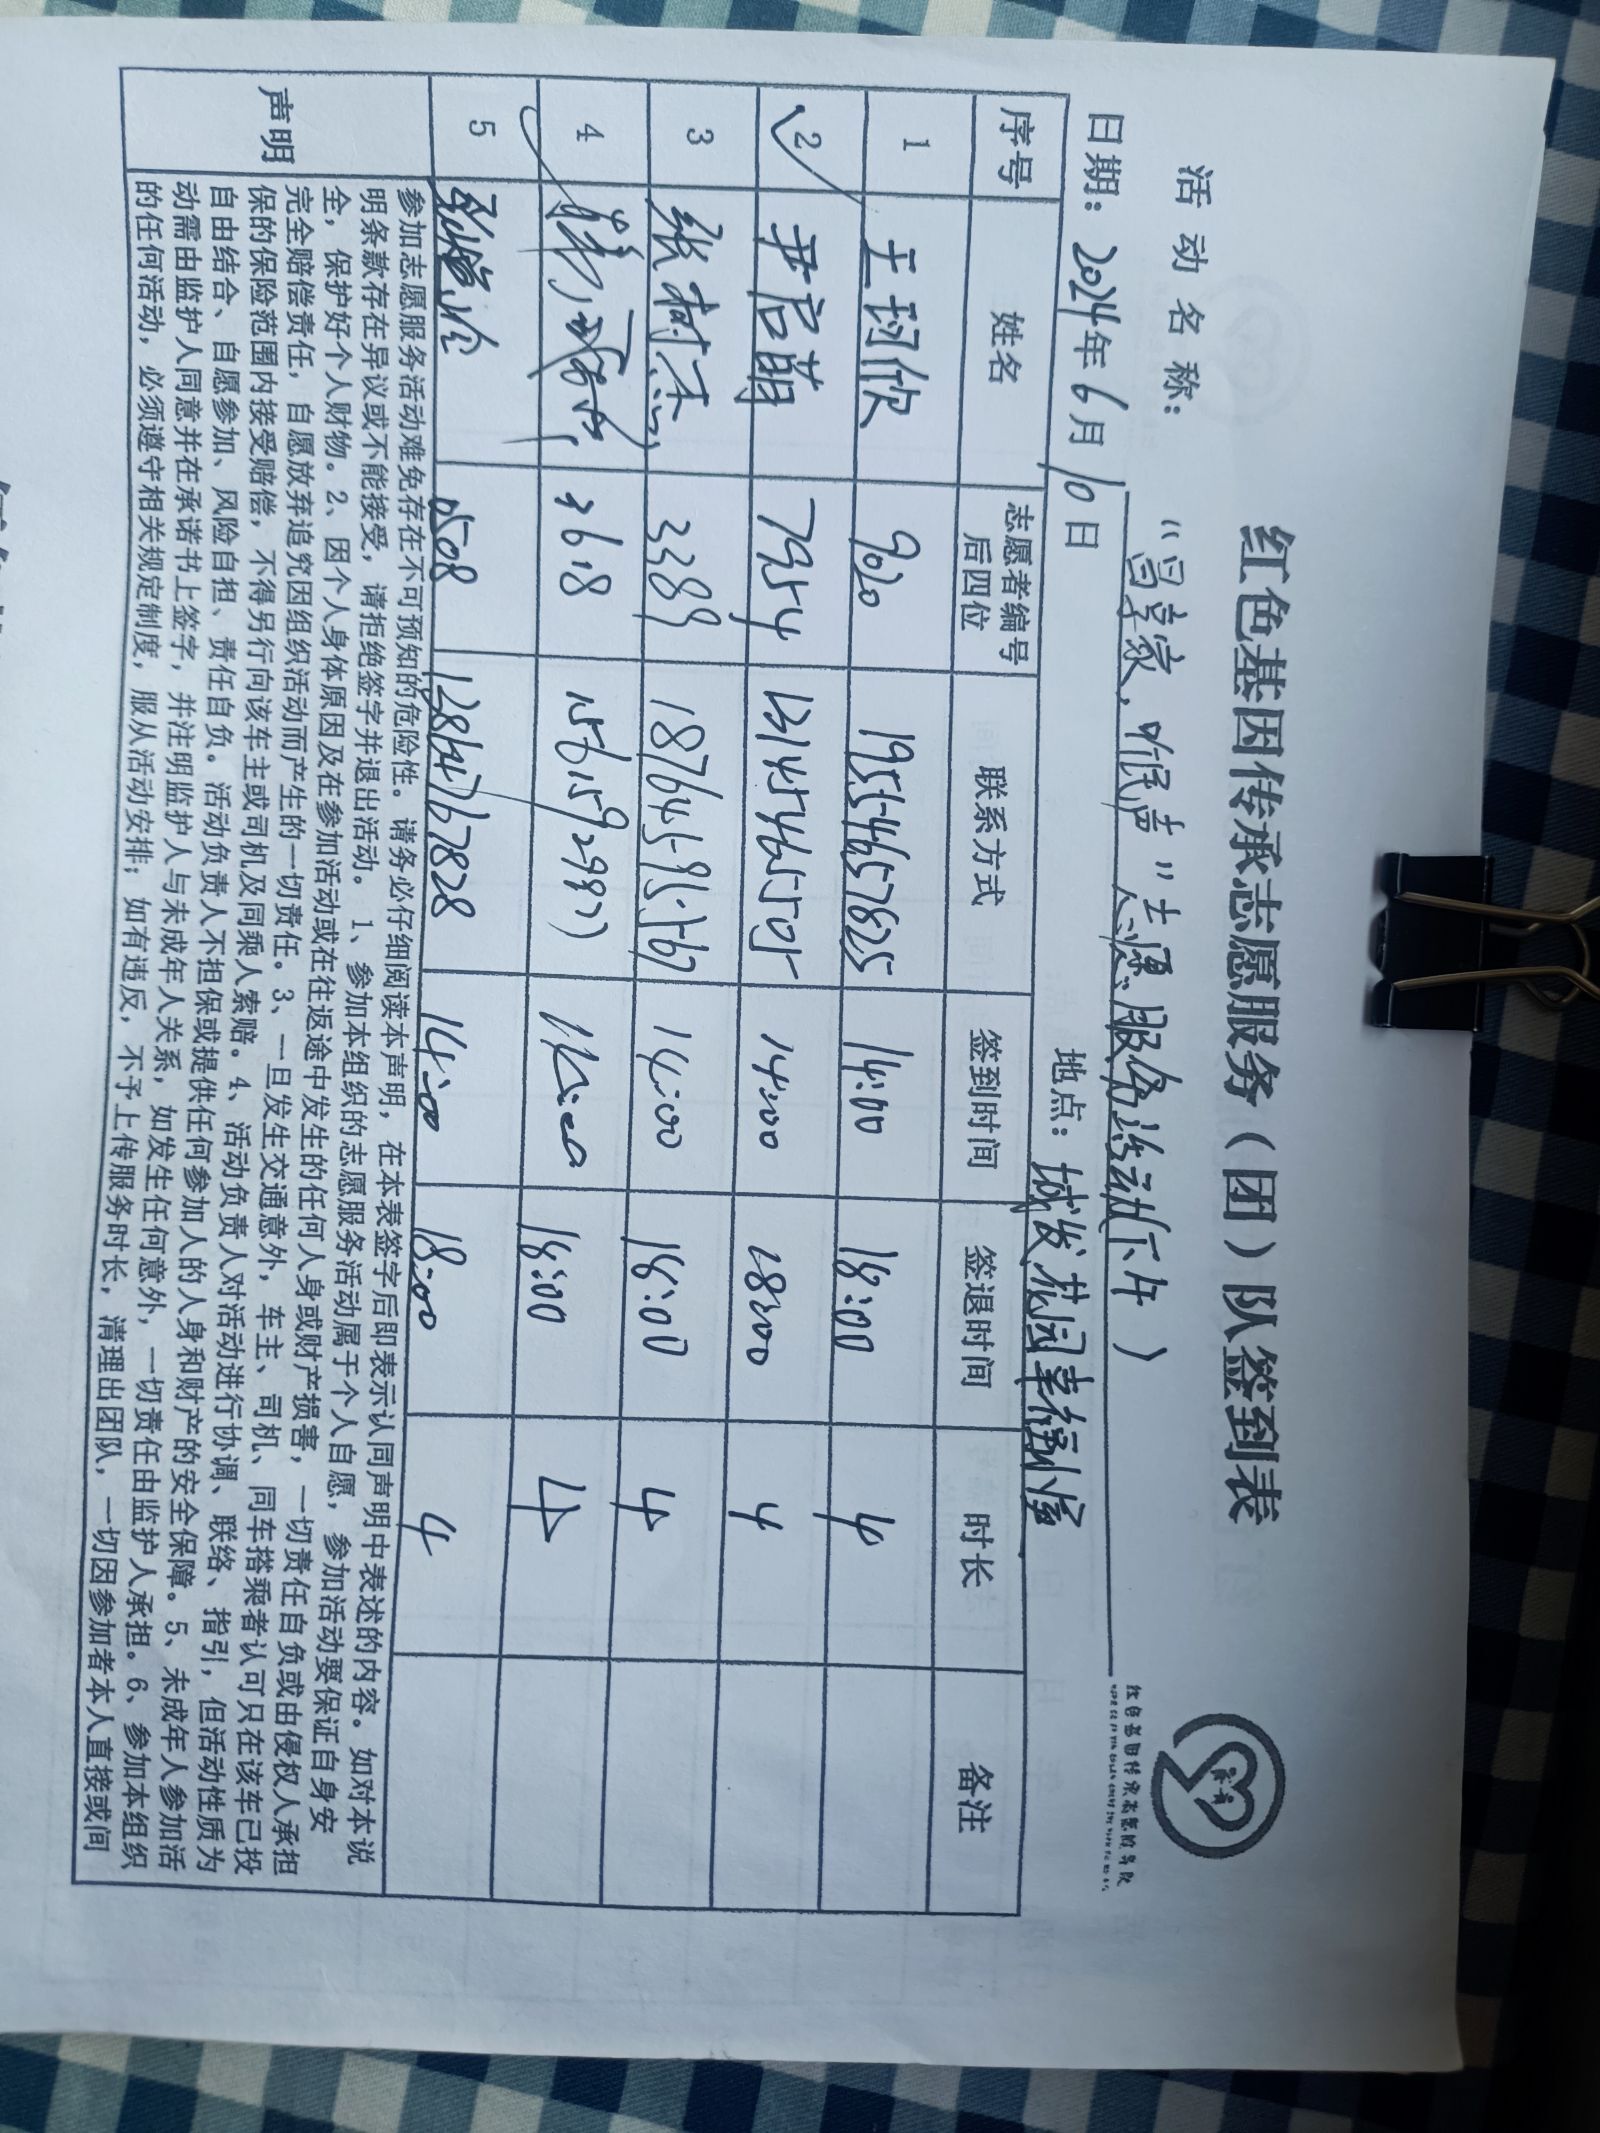 红色基因传承志愿服务（团）队签到表
活动名称：
志愿服务活动（下午）
日期：2024年6月10日 地点：城发花园幸福小院
序号 姓名 志愿者编号后四位 联系方式 签到时间 签退时间 时长 备注
1 王珂欣 9020 19554657825 14:00 18:00 4
2 尹启萌 7954 14:00 18:00 4
3 3389 18764595567 14:00 18:00 4
4 3618 15615929997 18:00 4
5 0508 14:00 18:00 4
声明
参加志愿服务活动难免存在不可预知的危险性。请务必仔细阅读本声明，在本表签字后即表示认同声明中表述的内容。如对本说
明条款存在异议或不能接受，请拒绝签字并退出活动。1、参加本组织的志愿服务活动属于个人自愿，参加活动要保证自身安
全，保护好个人财物。2、因个人身体原因及在参加活动或在往返途中发生的任何人身或财产损害，一切责任自负或由侵权人承担
完全赔偿责任，自愿放弃追究因组织活动而产生的一切责任。3、一旦发生交通意外，车主、司机、同车搭乘者认可只在该车已投
保的保险范围内接受赔偿，不得另行向该车主或司机及同乘人索赔。4、活动负责人对活动进行协调、联络、指引，但活动性质为
自由结合、自愿参加、风险自担、责任自负。活动负责人不担保或提供任何参加人的人身和财产的安全保障。5、未成年人参加活
动需由监护人同意并在承诺书上签字，并注明监护人与未成年人关系，如发生任何意外，一切责任由监护人承担。6、参加本组织
的任何活动，必须遵守相关规定制度，服从活动安排；如有违反，不予上传服务时长，清理出团队，一切因参加者本人直接或间